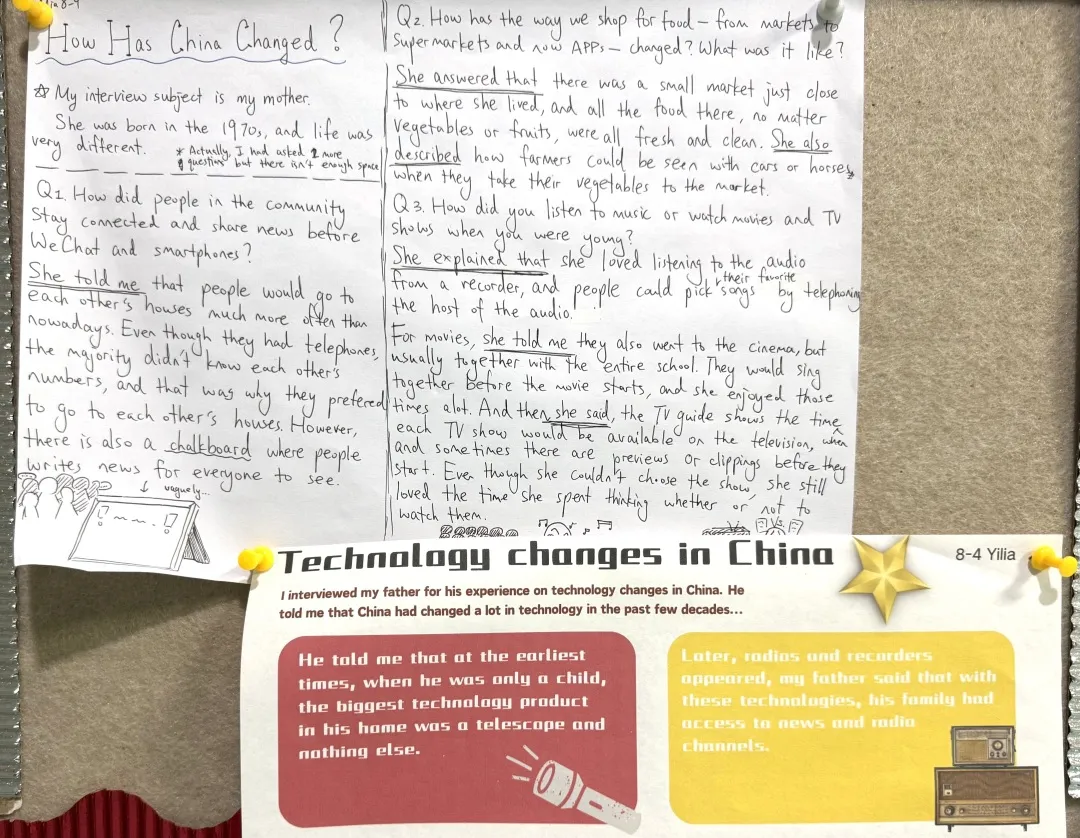 8-4
How Has China Changed?
☆ My interview subject is my mother.
She was born in the 1970s, and life was
very different.
* Actually, I had asked 2 more
questions but there isn't enough space
Q1. How did people in the community
stay connected and share news before
WeChat and smartphones?
She told me that people would go to
each other's houses much more often than
nowadays. Even though they had telephones,
the majority didn't know each other's
numbers, and that was why they prefered
to go to each other's houses. However,
there is also a chalkboard where people
writes news for everyone to see.
vaguely...
Q2. How has the way we shop for food – from markets to
supermarkets and now APPs – changed? What was it like?
She answered that there was a small market just close
to where she lived, and all the food there, no matter
vegetables or fruits, were all fresh and clean. She also
described how farmers could be seen with cars or horses
when they take their vegetables to the market.
Q3. How did you listen to music or watch movies and TV
shows when you were young?
She explained that she loved listening to the audio
from a recorder, and people could pick their favorite songs by telephoning
the host of the audio.
For movies, she told me they also went to the cinema, but
usually together with the entire school. They would sing
together before the movie starts, and she enjoyed those
times alot. And then she said, the TV guide shows the time when
each TV show would be available on the television,
and sometimes there are previews or clippings before they
start. Even though she couldn't choose the show, she still
loved the time she spent thinking whether or not to
watch them.
VS.
Technology changes in China
8-4 Yilia
I interviewed my father for his experience on technology changes in China. He
told me that China had changed a lot in technology in the past few decades...
He told me that at the earliest
times, when he was only a child,
the biggest technology product
in his home was a telescope and
nothing else.
Later, radios and recorders
appeared, my father said that with
these technologies, his family had
access to news and radio
channels.